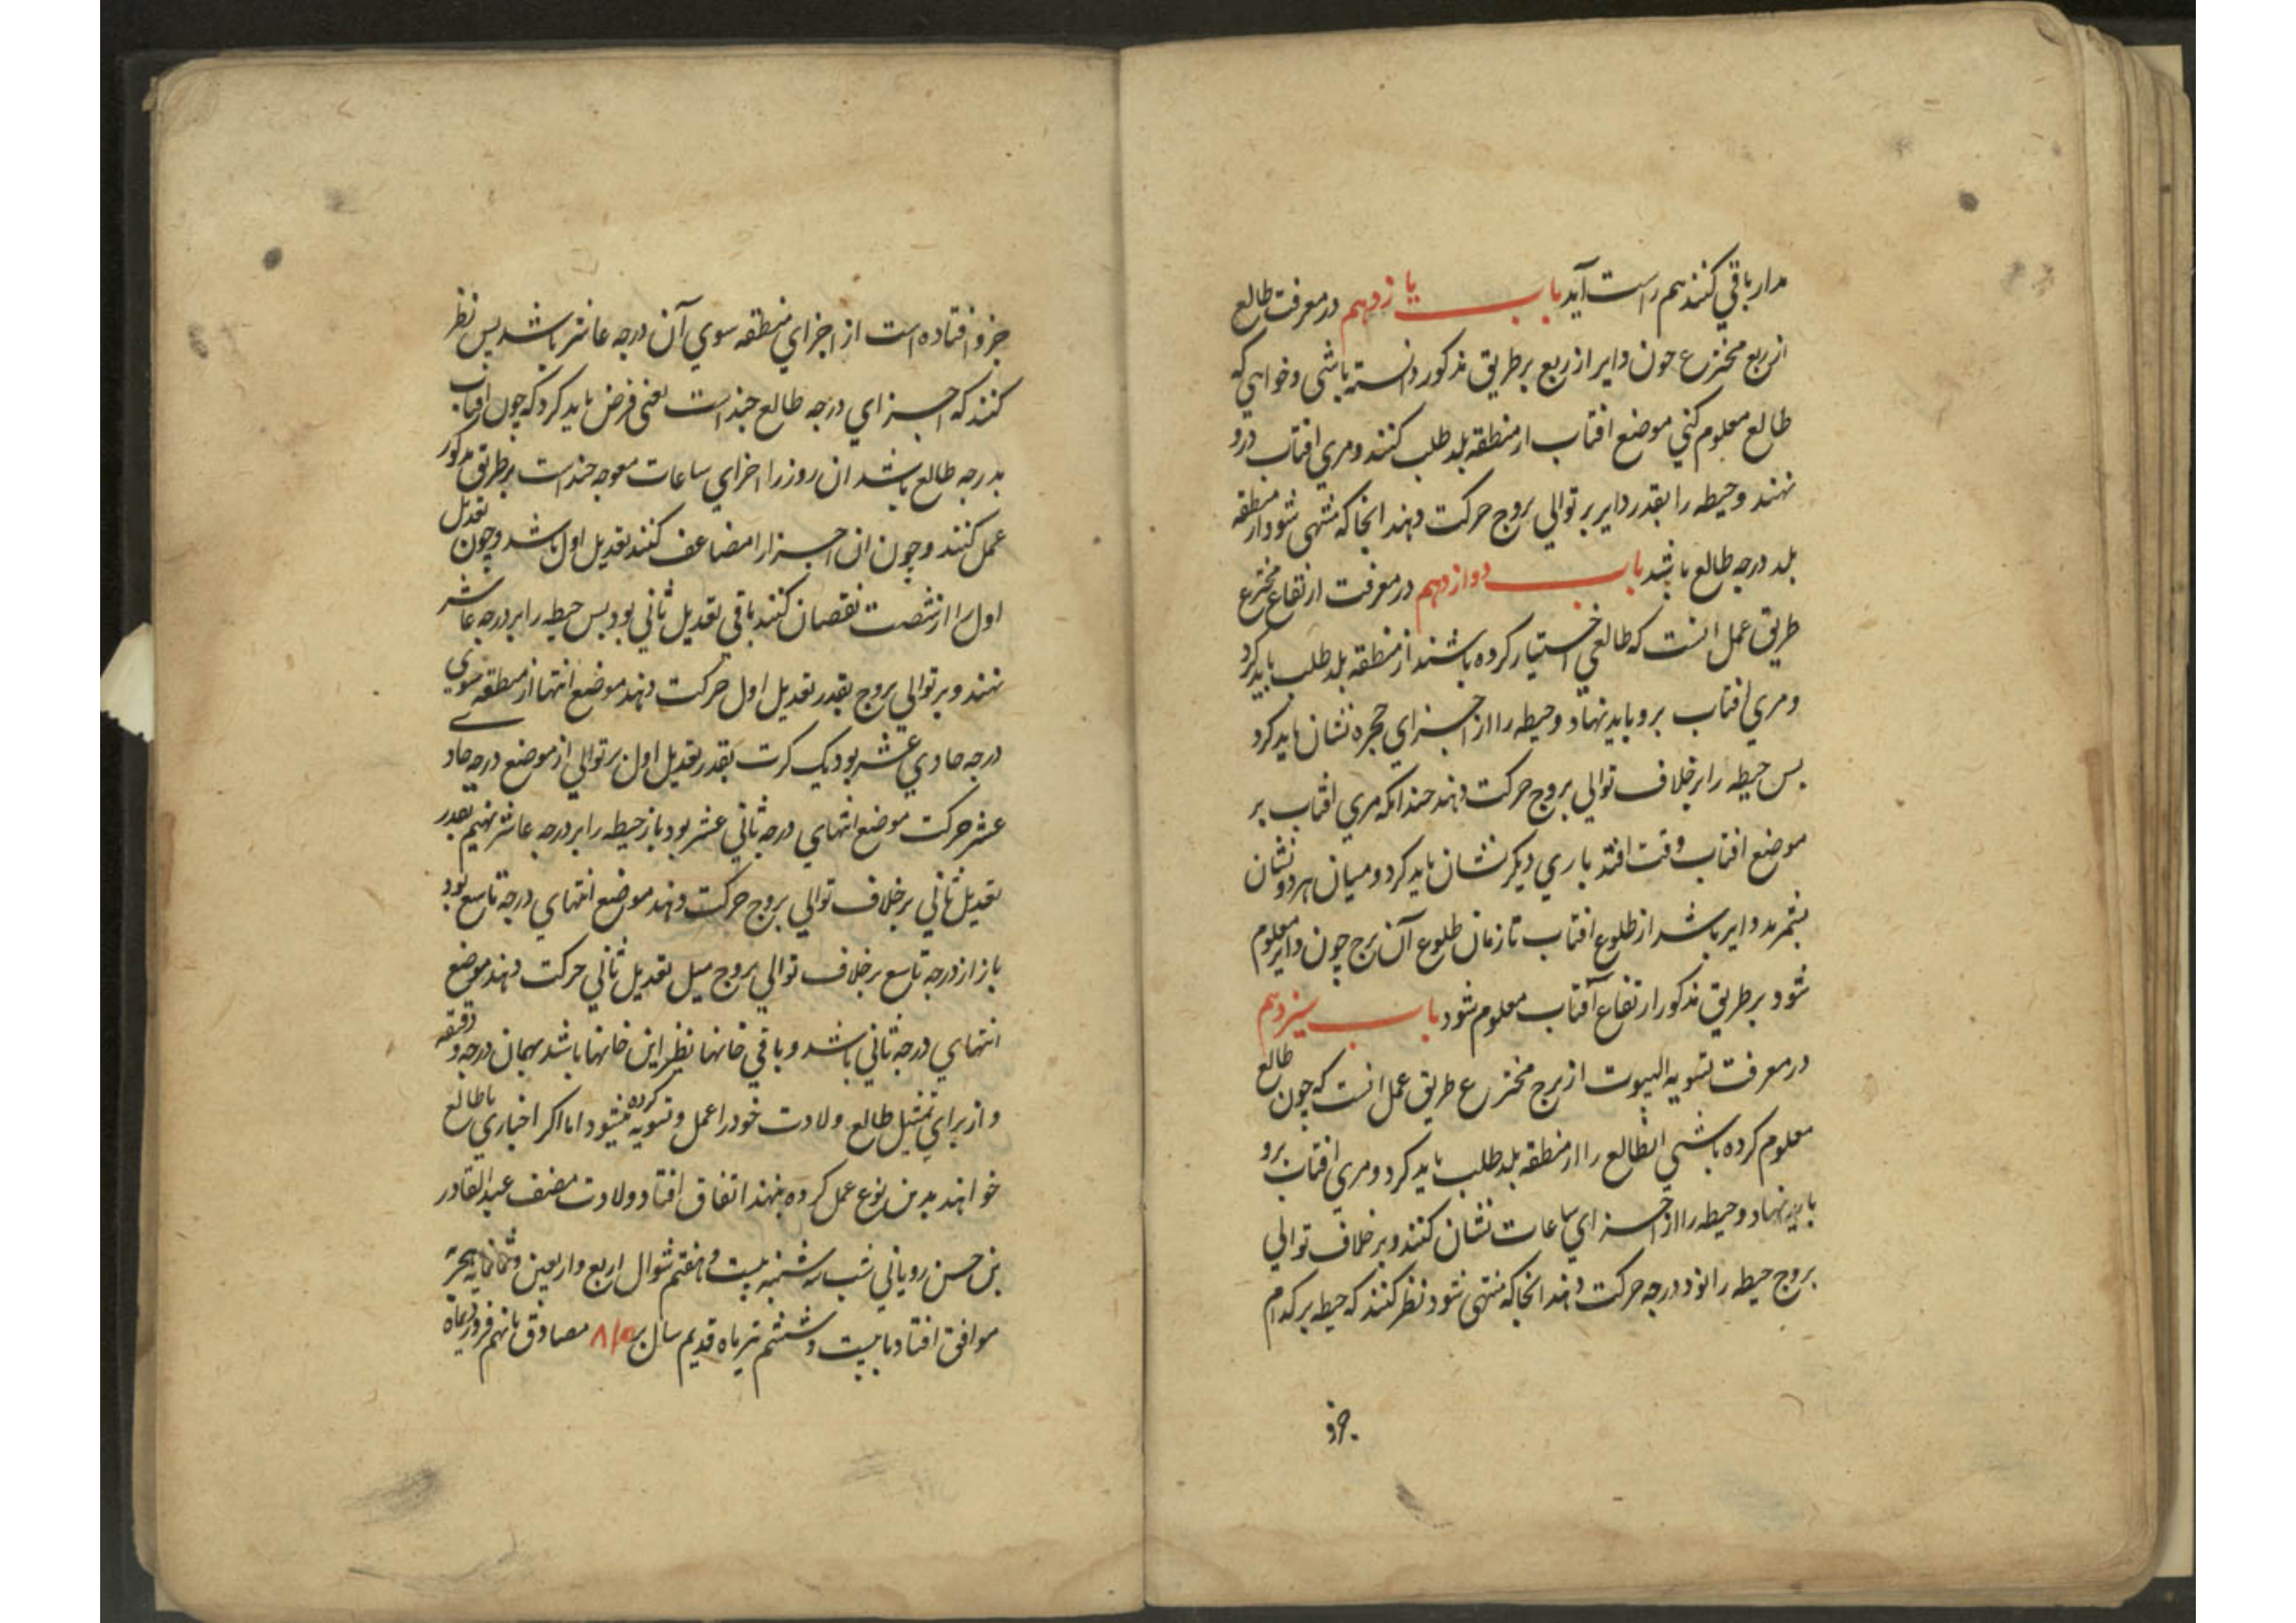 مدار باقی کنند هم راست آید باب یازدهم در معرفت طالع
از ربع مخترع چون دایر از ربع بر طریق مذکور دانسته باشی و خواهی که
طالع معلوم کنی موضع افتاب از منطقه بلد طلب کنند و مری افتاب درو
نهند و حیطه را بقدر دایر بر توالی بروج حرکت دهند انجا که منتهی شود از منطقه
بلد درجه طالع باشد باب دوازدهم در معرفت ارتفاع مخترع
طریق عمل انست که طالعی اختیار کرده باشند از منطقه بلد طلب باید کرد
و مری افتاب برو باید نهاد و حیطه را از اجزای حجره نشان باید کرد
بس حیطه را بر خلاف توالی بروج حرکت دهند چندانکه مری افتاب بر
موضع افتاب وقت افتد باری دیکر نشان باید کرد و میان هر دو نشان
بشمرند دایر باشد از طلوع افتاب تا زمان طلوع آن برج چون دایر معلوم
شود بر طریق مذکور ارتفاع آفتاب معلوم شود باب سیزدهم
در معرفت تسویه البیوت از برج مخترع طریق عمل انست که چون طالع
معلوم کرده باشی انطالع را از منطقه بلد طلب باید کرد و مری افتاب برو
باید نهاد و حیطه را از اجزای ساعات نشان کنند و بر خلاف توالی
بروج حیطه را نود درجه حرکت دهند انجا که منتهی شود نظر کنند که حیطه بر کدام
جزو
جزو افتاده است از اجزای منطقه سوی آن درجه عاشر باشد بس نظر
کنند که اجزای درجه طالع چند است یعنی فرض باید کرد که چون افتاب
بدرجه طالع باشد ان روز را اجزای ساعات معوجه چند است بر طریق مذکور
عمل کنند و چون ان اجزا را مضاعف کنند تعدیل اول باشد و چون تعدیل
اول را از شصت نقصان کنند باقی تعدیل ثانی بود بس حیطه را بر درجه عاشر
نهند و بر توالی بروج بقدر تعدیل اول حرکت دهند موضع انتها از منطقه سوی
درجه حادی عشر بود یک کرت بقدر تعدیل اول بر توالی از موضع درجه حادی
عشر حرکت موضع انتهای درجه ثانی عشر بود باز حیطه را بر درجه عاشر نهیم بقدر
تعدیل ثانی بر خلاف توالی بروج حرکت دهند موضع انتهای درجه تاسع بود
باز از درجه تاسع بر خلاف توالی بروج میل تعدیل ثانی حرکت دهند موضع
انتهای درجه ثانی باشد و باقی خانها نظیر این خانها باشد بهمان درجه و دقیقه
و از برای تمثیل طالع ولادت خود را عمل و تسویه کرده میشود اما اکر اختیاری با طالع
خواهند بدین نوع عمل کرده بنهند اتفاق افتاد ولادت مصنف عبد القادر
بن حسن رویانی شب سه شنبه بیست و هفتم شوال اربع و اربعین و ثمانمایه هجریة
موافق افتاد با بیست و ششم تیرماه قدیم سال بر ۸۱۰ مصادف با نهم فروردیماه